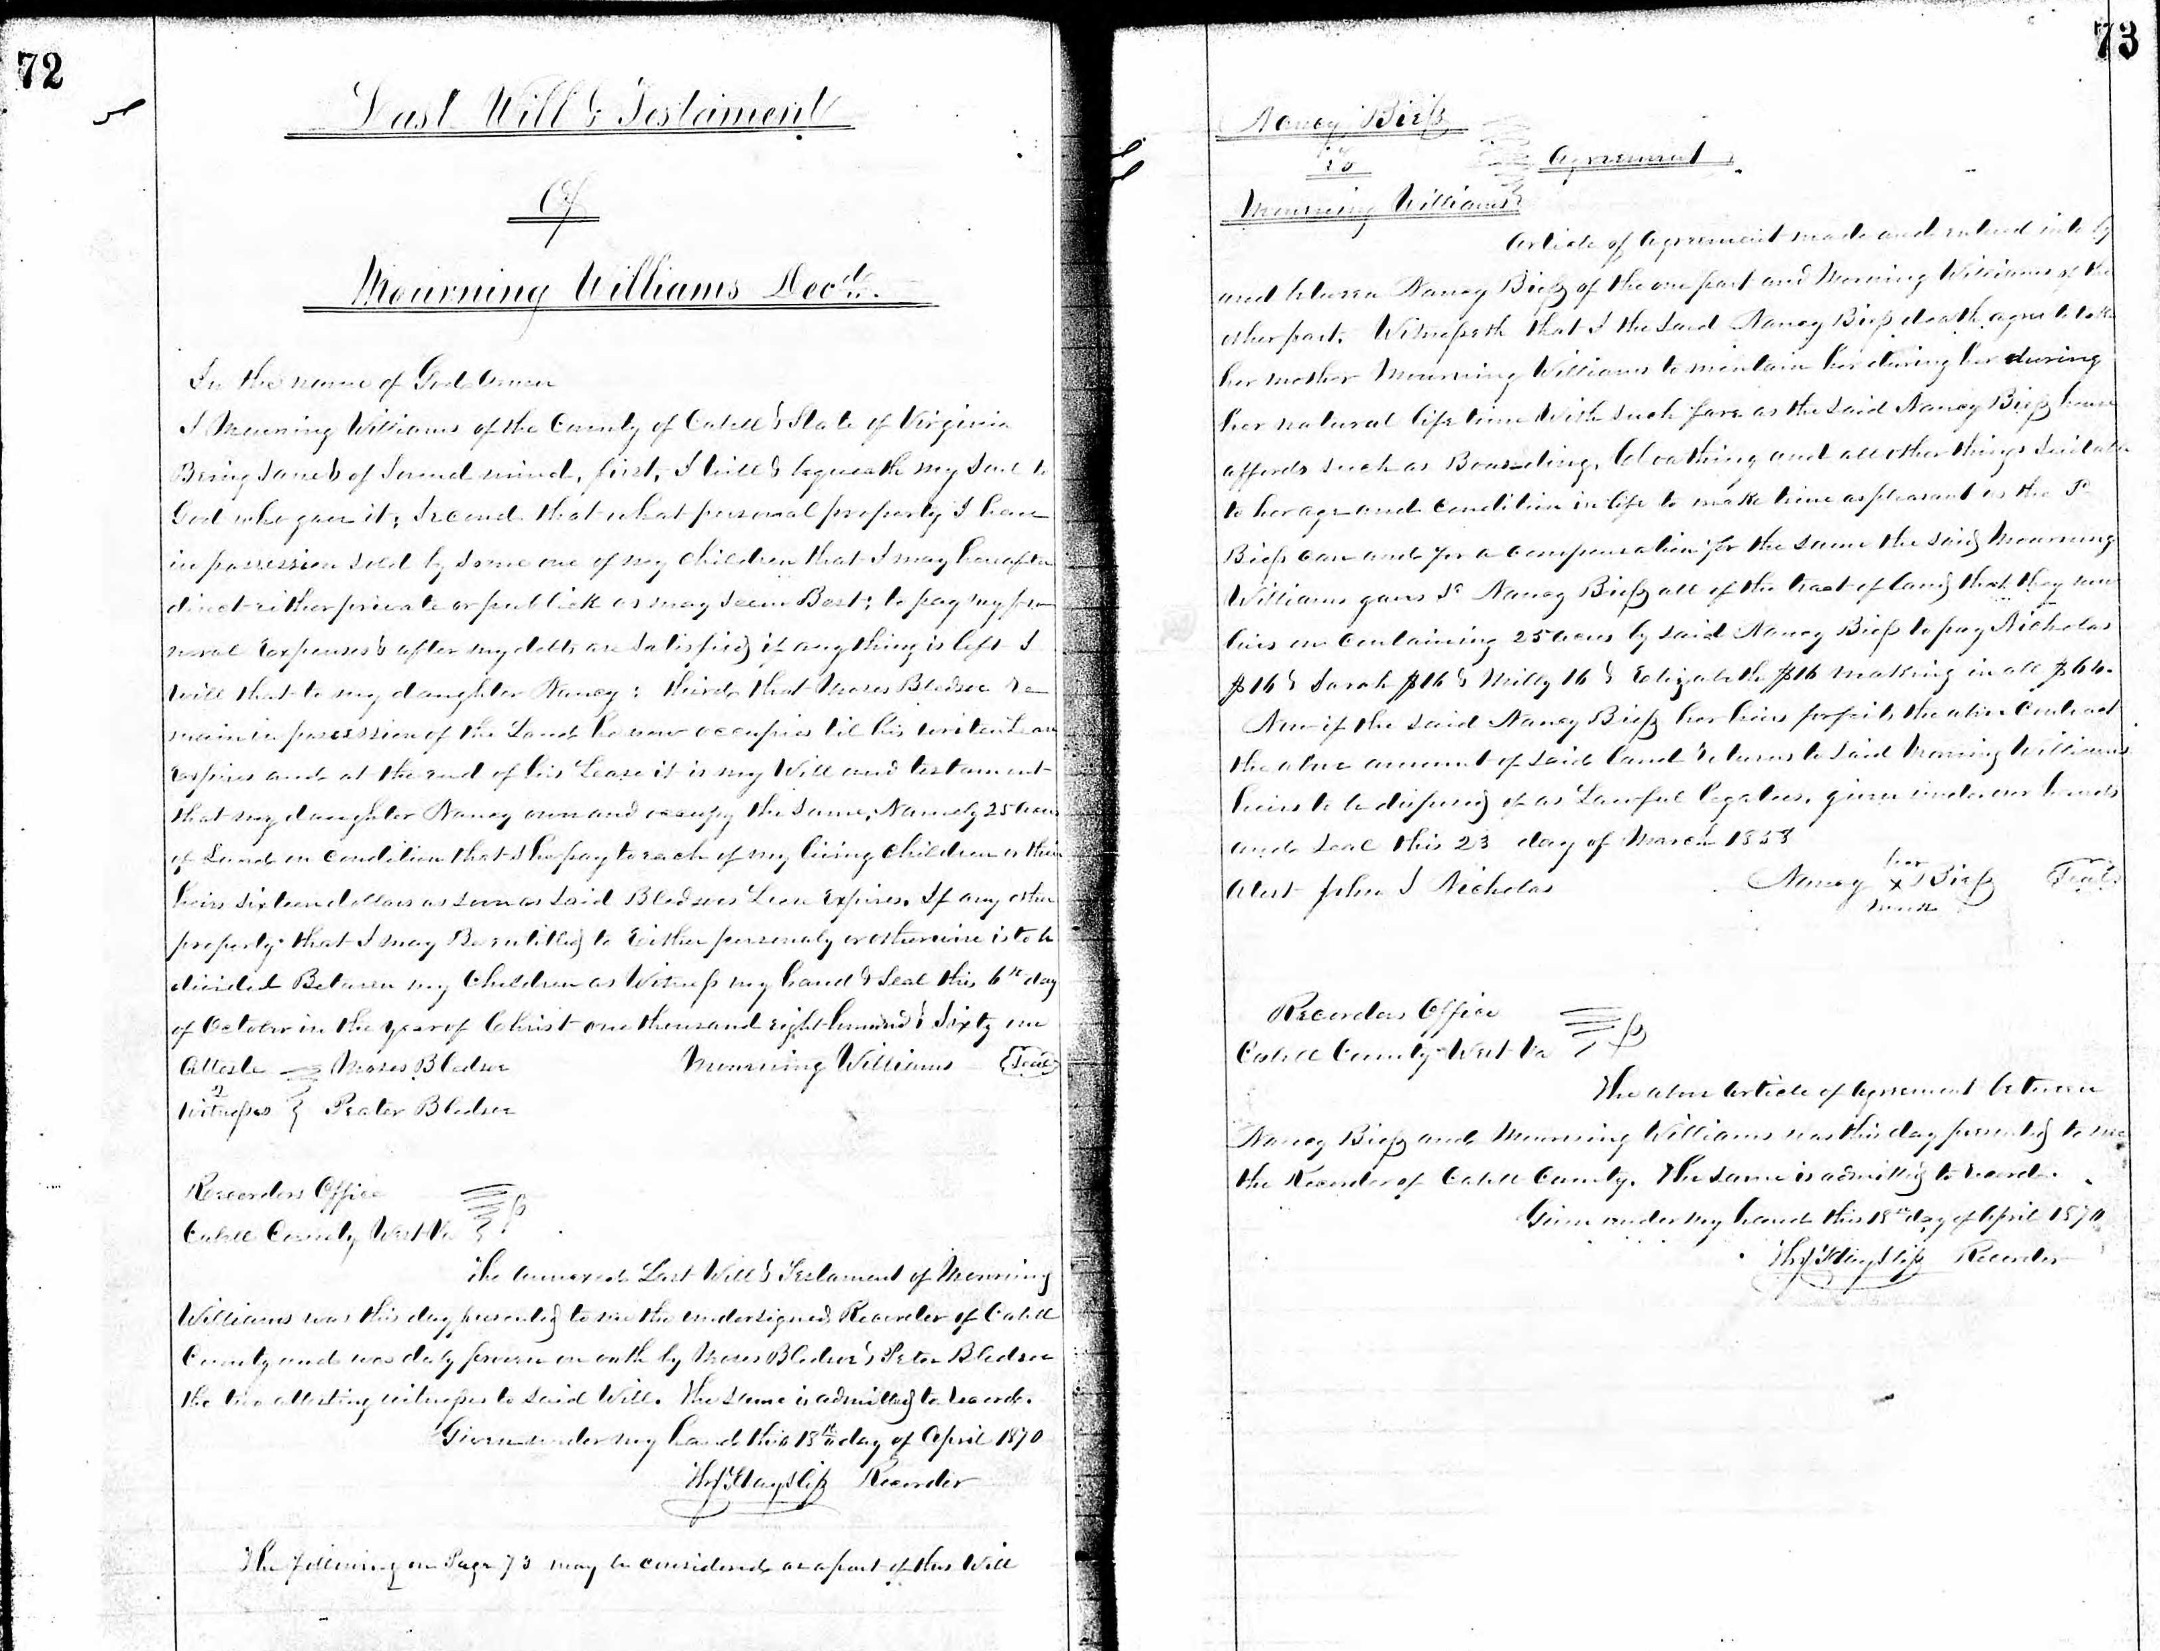 72
Last Will & Testament
Of
Mourning Williams Decd.
In the name of God Amen
I Mourning Williams of the County of Cabell & State of Virginia
Being Sane & of Sound mind, first, I will & bequeath my Soul to
God who gave it; Second that what personal property I have
in possession sold by some one of my children that I may hereafter
direct either private or publick as may seem Best; to pay my fu
neral Expenses & after my debts are Satisfied if any thing is left I
will that to my daughter Nancy: third that Moses Bledsoe re
main in possession of the Land he now occupies til his writen Lease
Expires and at the end of his Lease it is my Will and testament
that my daughter Nancy own and occupy the Same, Namely 25 Acres
of Land on condition that She pay to each of my living children or their
heirs sixteen dollars as soon as Said Bledsoes Lease Expires. If any other
property that I may Be entitled to Either personaly or otherwise is to be
divided Between my Children as Witness my hand & Seal this 6th day
of October in the year of Christ one thousand eight hundred & Sixty one
Atteste Moses Bledsoe Mourning Williams Seal
2
Witnesses Peater Bledsoe
Recorders Office
Cabell County West Va
The annexed Last Will & Testament of Mourning
Williams was this day presented to me the undersigned Recorder of Cabell
County and was duly proven on oath by Moses Bledsoe & Peter Bledsoe
the two attesting witnesses to said Will. The same is admitted to record.
Given under my hand this 18th day of April 1870
Recorder
The following on Page 73 may be considered as a part of this Will
73
Nancy Bieß
to
Agreement
Mourning Williams
Article of Agreement made and entered into by
and between Nancy Bieß of the one part and Morning Williams of the
other part. Witnesseth that I the Said Nancy Bieß doath agree to take
her mother Mourning Williams to maintain her during her during
her natural life time With such fare as the said Nancy Bieß house
affords such as Boarding, Cloathing and all other things Suitable
to her age and condition in life to make time as pleasant as the Sd
Bieß can and for a compensation for the same the said Mourning
Williams gives Sd Nancy Bieß all of the tract of land that they now
lives on containing 25 acres by said Nancy Bieß to pay Nicholas
$16 & Sarah $16 & Milly 16 & Elizabeth $16 making in all $64.
Now if the said Nancy Bieß her heirs forfeits the above Contract
the above amount of said land returns to said Morning Williams
heirs to be disposed of as Lawful legatees, given under our hands
and Seal this 23 day of March 1858
Attest John S Nicholas Nancy X Bieß Seal
her
mark
Recorders Office
Cabell County West Va
The above Article of Agreement between
Nancy Bieß and Mourning Williams was this day presented to me
the Recorder of Cabell County. The same is admitted to record.
Given under my hand this 18th day of April 1870
Recorder